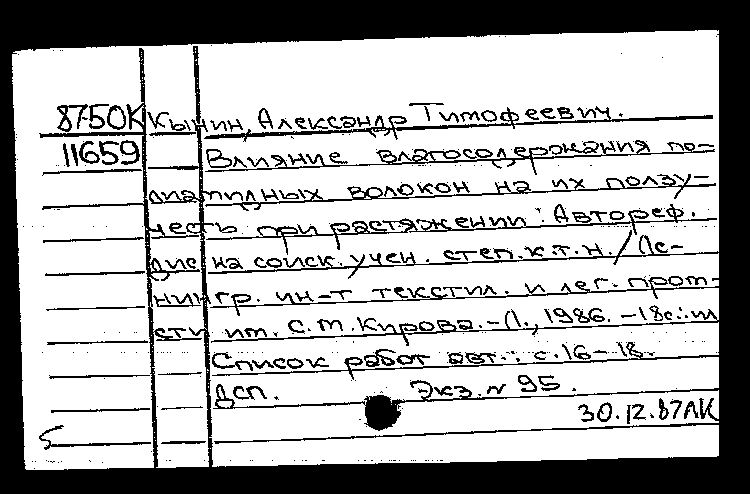 87-50К Кынин, Александр Тимофеевич.
11659 Влияние влагосодержания по-
лиамидных волокон на их ползу-
честь при растяжении : Автореф.
дис на соиск. учен. степ. к.т.н. / Ле-
нингр. ин-т текстил. и лег. пром-
сти им. С.М. Кирова. - Л., 1986. - 18с.: ил
Список работ авт.: с. 16-18.
ДСП. Экз. № 95.
30.12.87ЛК